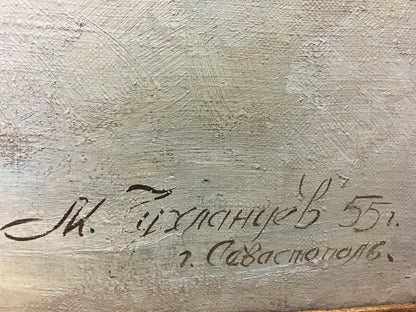 М. Тихланцев 55 г.
г. Севастополь.